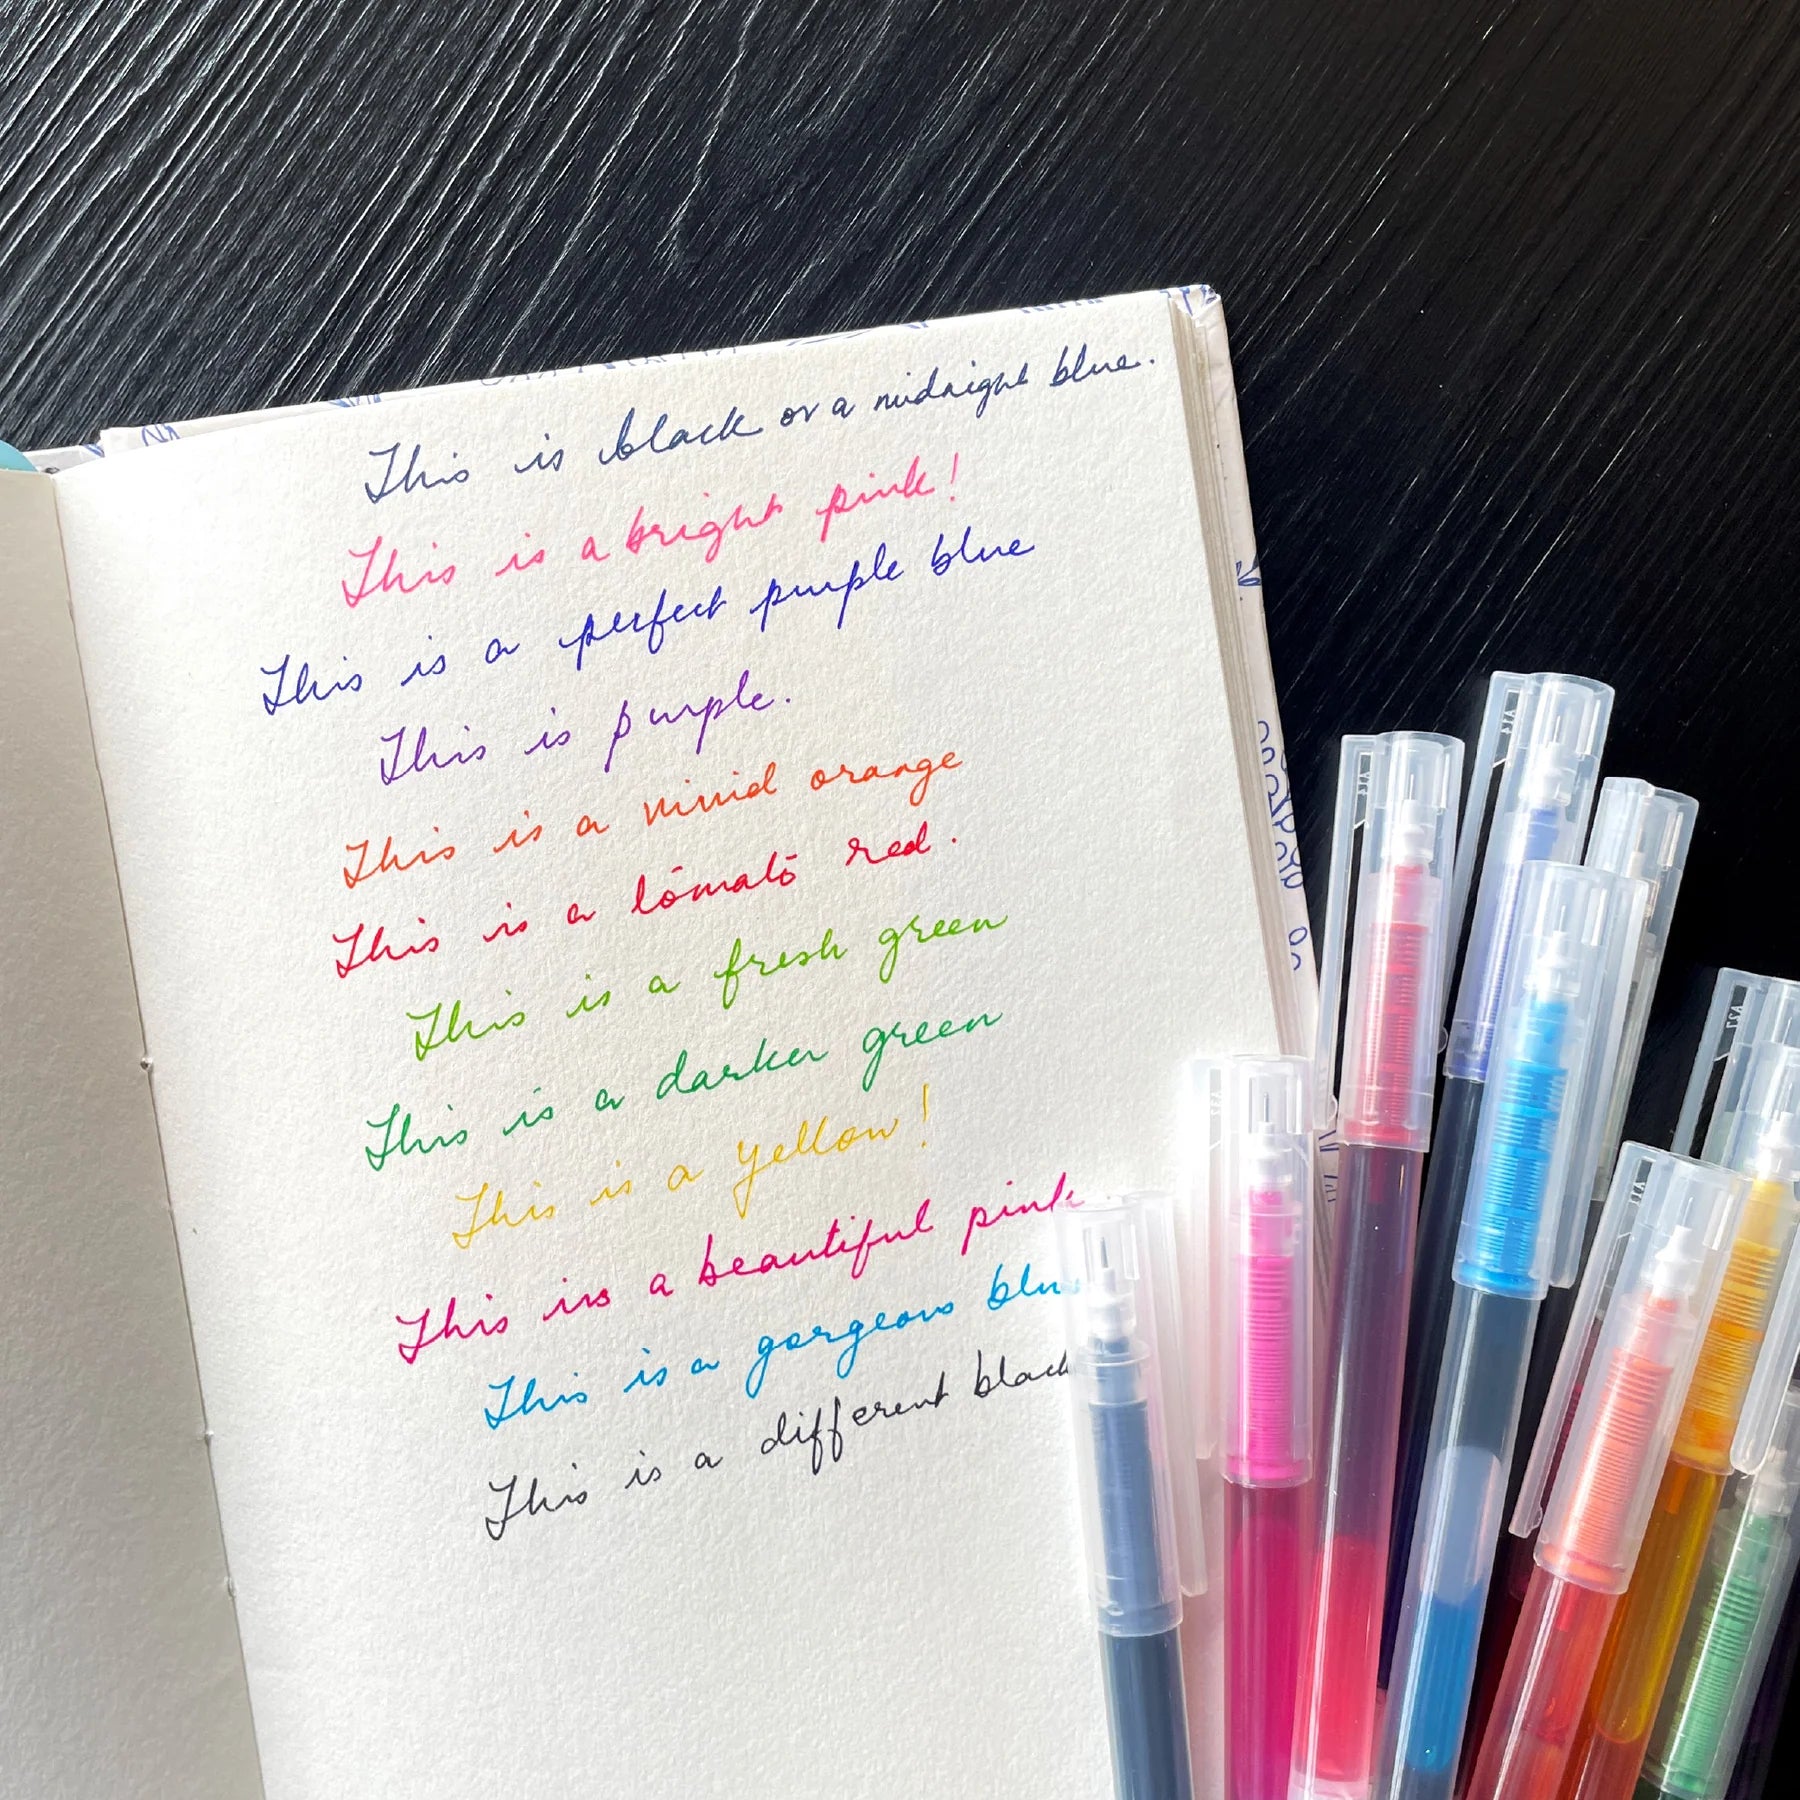 This is black or a midnight blue.
This is a bright pink!
This is a perfect purple blue
This is purple.
This is a vivid orange
This is a tomato red.
This is a fresh green
This is a darker green
This is a yellow!
This is a beautiful pink.
This is a gorgeous blue
This is a different black